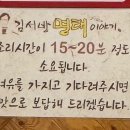 김서방 명태 이야기.
조리시간이 15~20분 정도
소요됩니다.
여유를 가지시고 기다려주시면
맛으로 보답해 드리겠습니다.